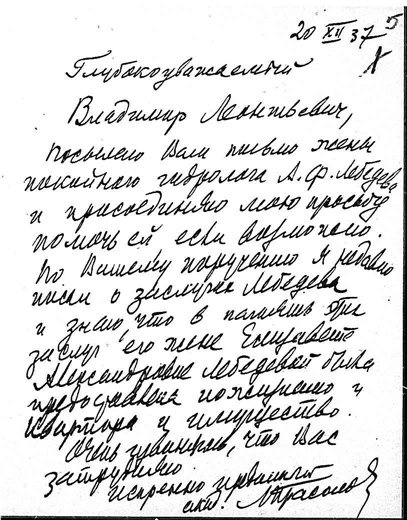 20 XII 37
Глубокоуважаемый
Владимир Леонтьевич,
посылаю Вам письмо жены
покойного гидролога А.Ф. Лебедева
и присоединяю мою просьбу
помочь ей если возможно.
По Вашему поручению я недавно
писал о заслугах Лебедева
и знаю, что в память этих
заслуг его жене Елизавете
Александровне Лебедевой была
предоставлена пожизненно и
квартира и имущество.
Очень что Вас
затрудняю
искренно
акад.